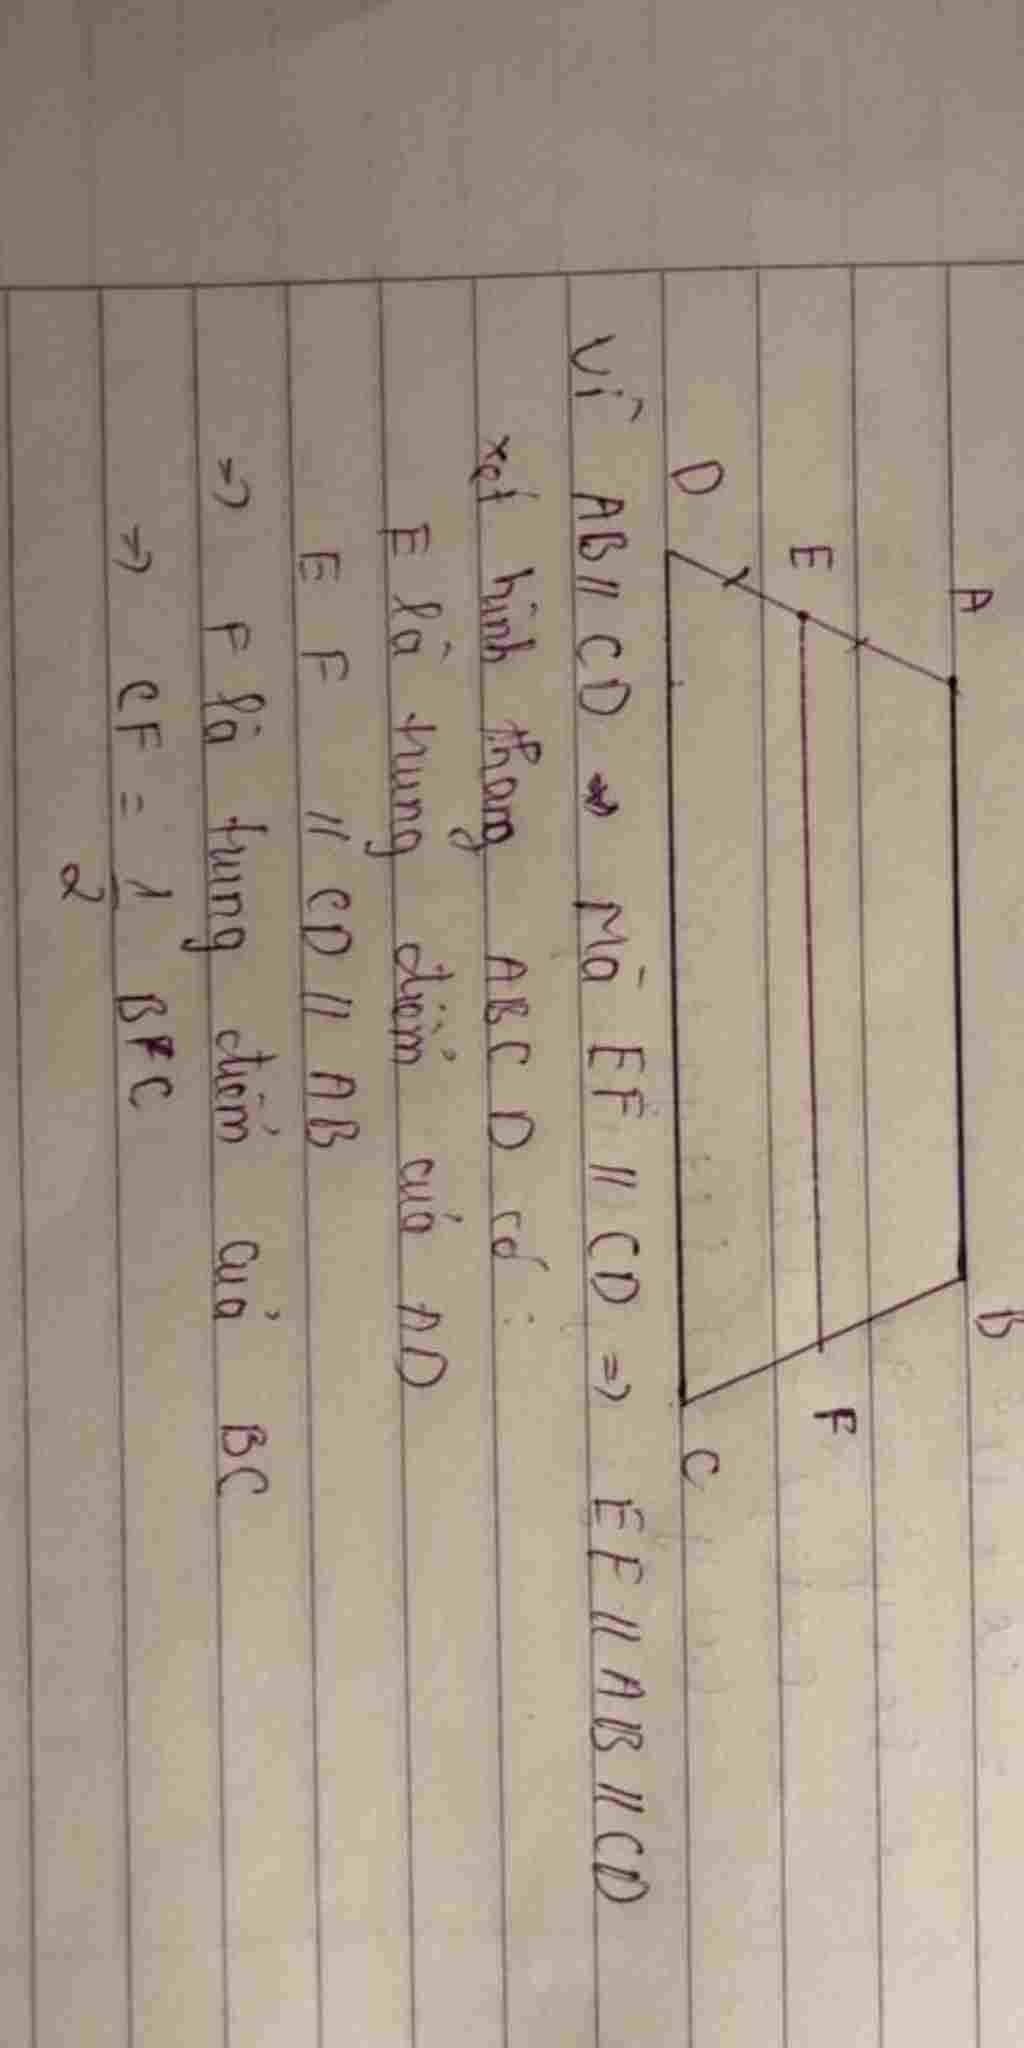 A B
E F
D C
Vì AB // CD => Mà EF // CD => EF // AB // CD
xét hình thang ABCD có :
E là trung điểm của AD
EF // CD // AB
=> F là trung điểm của BC
=> CF = 1/2 BC